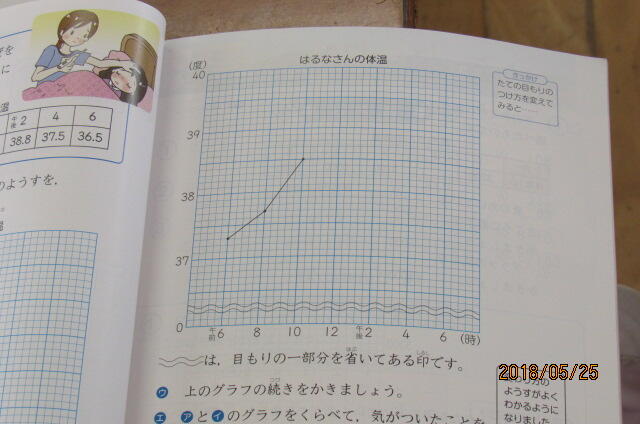 午後2 4 6
38.8 37.5 36.5
のようすを,
はるなさんの体温
(度)
40
39
38
37
0
午前6 8 10 12 午後2 4 6 (時)
きっかけ
たての目もりの
つけ方を変えて
みると……
は,目もりの一部分を省いてある印です。
ウ 上のグラフの続きをかきましょう。
エ アとイのグラフをくらべて,気がついたことを
ようすがよく
わかるように
なりました
2018/05/25